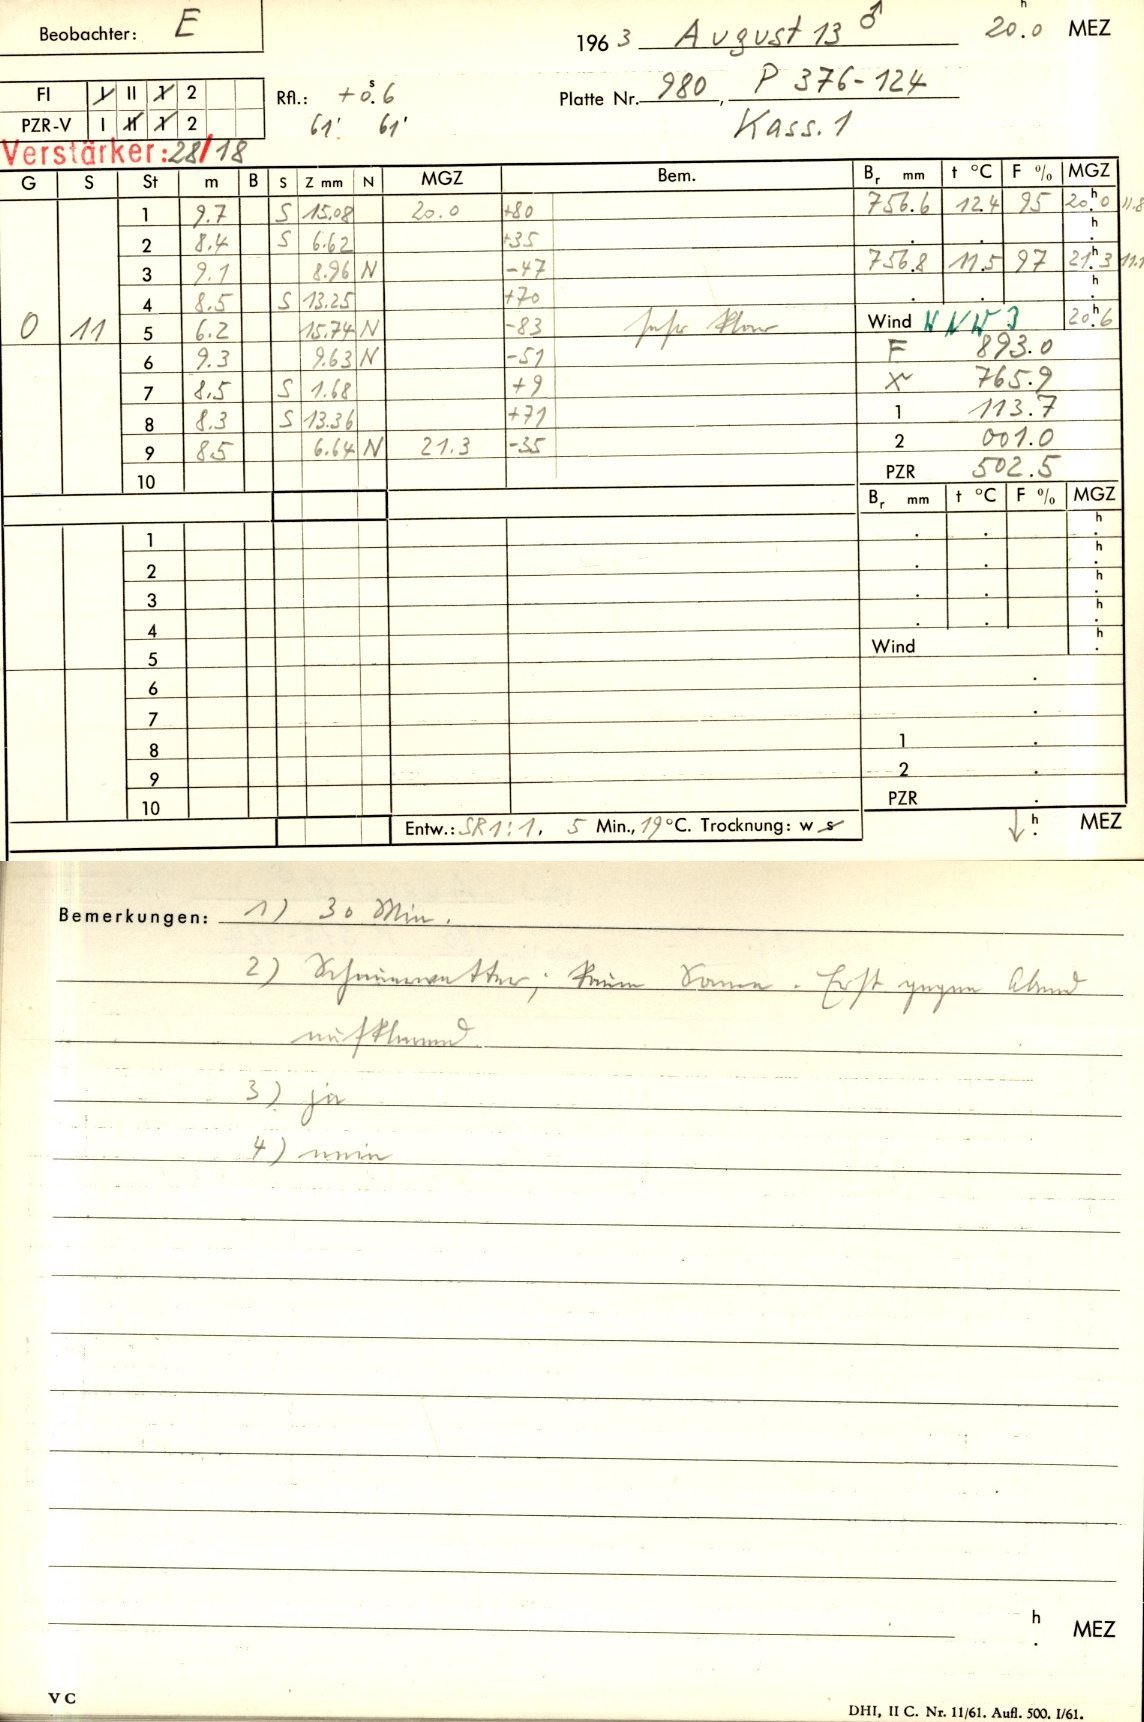 Beobachter: E
196 3 August 13 ♂ 20.0 h MEZ
FI I II 1 2
Rfl.: +0.6 s
Platte Nr. 980, P 376-124
PZR-V I II 1 2
61' 61'
Kass. 1
Verstärker: 28/18
G S St m B S Z mm N MGZ Bem. Br mm t °C F % MGZ
1 9.7 S 15.08 20.0 +80 756.6 12.4 95 20.0 h 11.8
2 8.4 S 6.62 +35 . . h .
3 9.1 8.96 N -47 756.8 11.5 97 21.3 h 11.1
4 8.5 S 13.25 +70 . . h .
0 11 5 6.2 15.74 N -83 sehr klar Wind NNW 3 20.6 h
6 9.3 9.63 N -51 F 893.0
7 8.5 S 1.68 +9 765.9
8 8.3 S 13.36 +71 1 113.7
9 8.5 6.64 N 21.3 -35 2 001.0
10 PZR 502.5
Br mm t °C F % MGZ
1 . . h .
2 . . h .
3 . . h .
4 . . h .
5 Wind h .
6 .
7 .
8 1 .
9 2 .
10 PZR .
Entw.: SR 1:1, 5 Min., 19 °C. Trocknung: w s
↓ h . MEZ
Bemerkungen: 1) 30 Min.
2) Schauerwetter; kaum Sonne. Erst gegen Abend
aufklarend
3) ja
4) nein
h . MEZ
V C
DHI, II C. Nr. 11/61. Aufl. 500. I/61.